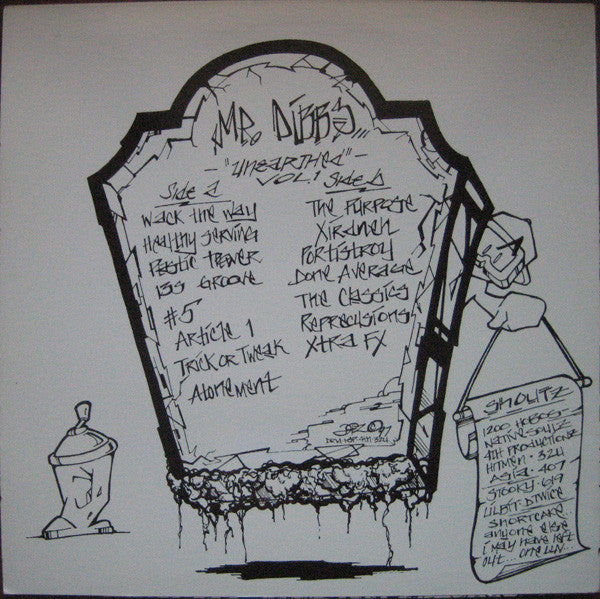 MR. DIBBS...
- "UNEARTHED" -
VOL. 1
Side a
Wack the Way
Healthy Serving
Plastic Trower
135 Groove
#5
Article 1
Trick or Tweak
Atonement
Side b
The Purpose
Xirdneh
Portistroy
Done Average
The Classics
Reprecusions
Xtra FX
SHOUTZ
1200 HOBOS
NATIVE SOULZ
4TH PRODUCTIONZ
HITMEN - 324
ASIAL - 407
STOOKY - 619
LILBIT - DTWICE
SHORTCAKE...
anyone else
I may have left
out... ONE LUV...